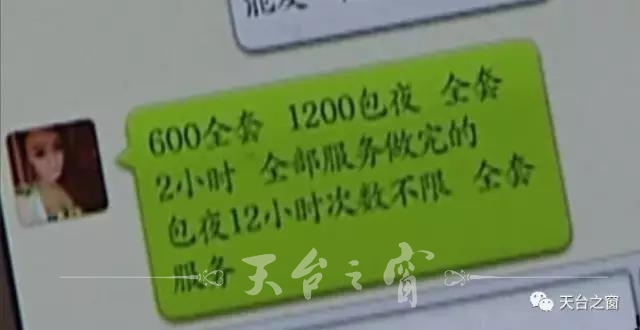 600全套 1200包夜 全套
2小时 全部服务做完的
包夜12小时次数不限 全套
服务
天台之窗
天台之窗